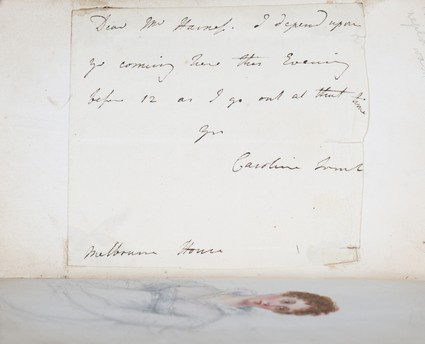 Dear Mr Harness. I depend upon
yr coming here this Evening
before 12 as I go out at that time
Yrs
Caroline Lamb
Melbourne House